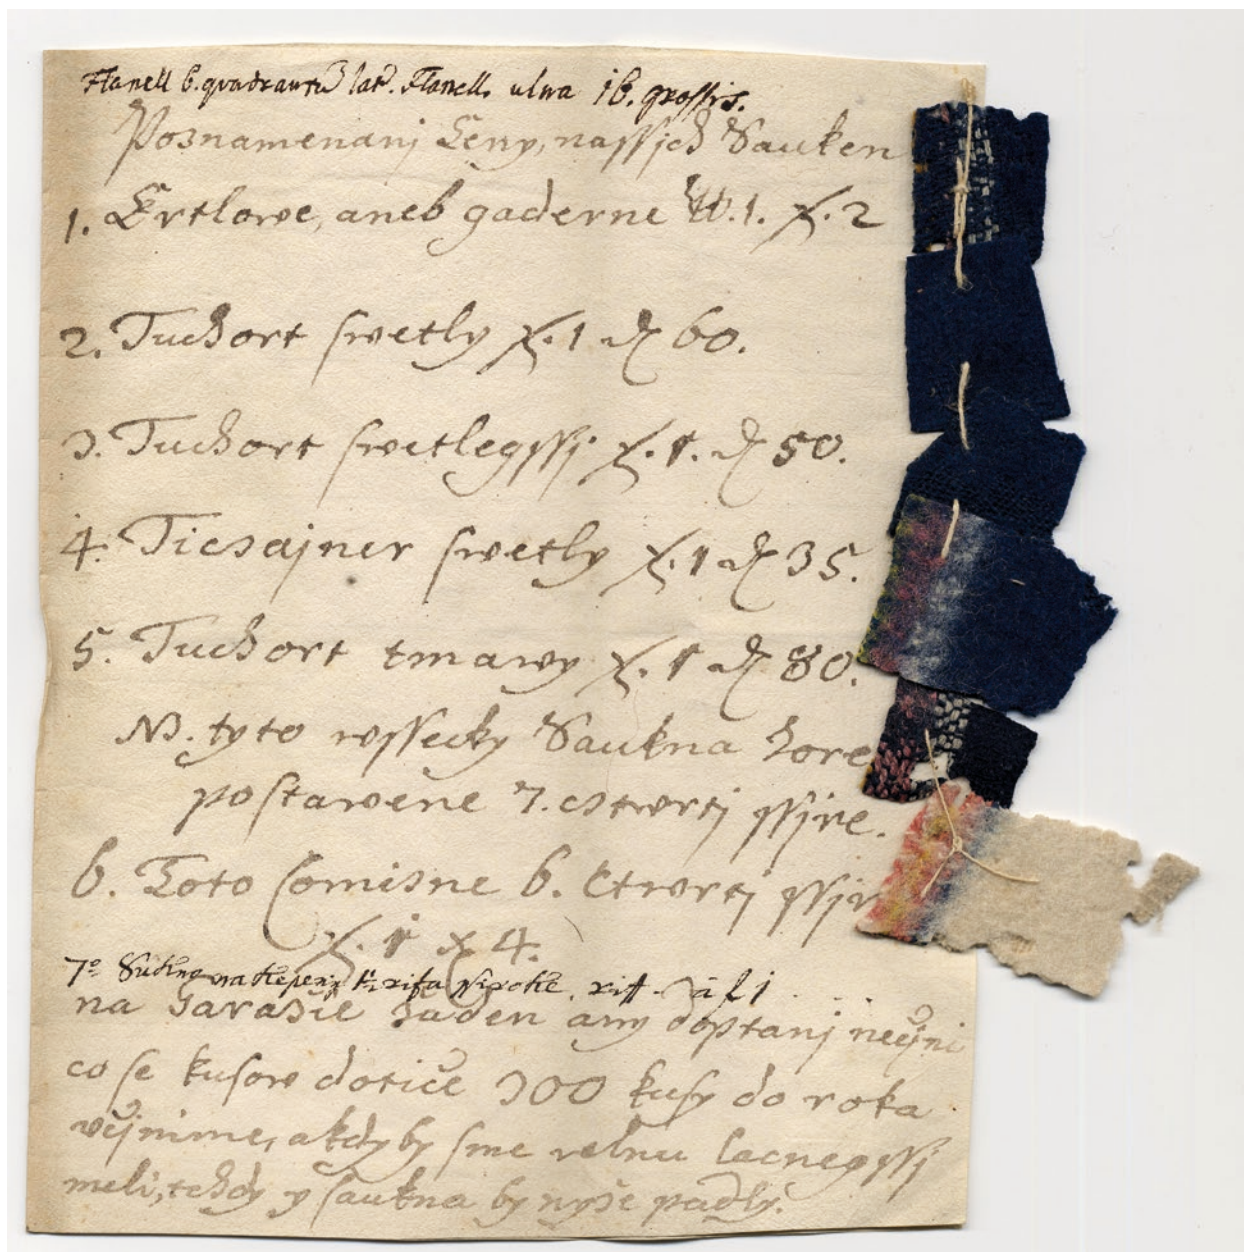 Flanell 6. quadrantū lat. Flanell. ulna 16. grossis.
Poznamenanj Ceny, nassjch Sauken
1. Ertlowe, aneb gaderne W. 1. X. 2
2. Tuchort swetly X. 1 d 60.
3. Tuchort swetlegssj X. 1. d 50.
4. Ticzajner swetly X. 1 d 35.
5. Tuchort tmawy X. 1 d 80.
NB. tyto wssecky Saukna hore
postawene 7. cztwrtj ssjre.
6. Toto Comisne 6. Ctwrtj ssjr
X. 1 x 4.
7º
na harazie žaden any doptanj nečinj
co se kusow dotiče 300 kusy do roka
včinime, a kdyby sme velnu lacnegssj
meli, tehdy y saukna by nyže padly.